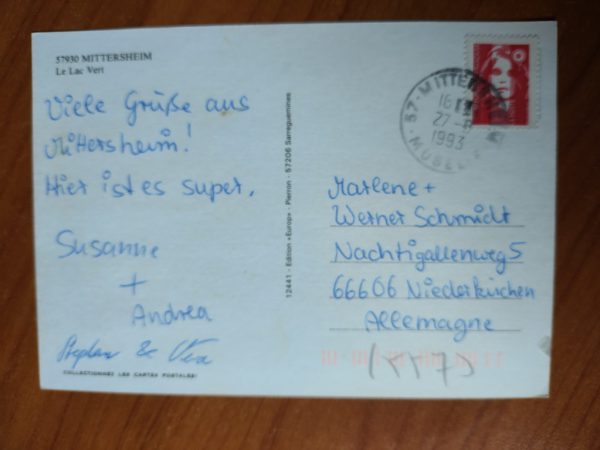 57930 MITTERSHEIM
Le Lac Vert
Viele Grüße aus
Mittersheim!
Hier ist es super.
Susanne
+
Andrea
Stephan &
COLLECTIONNEZ LES CARTES POSTALES!
12441 - Edition «Europ» - Pierron - 57206 Sarreguemines
57-MITTER
16
27-
1993
MOSELLE
Marlene +
Werner Schmidt
Nachtigallenweg 5
66606 Niederkirchen
Allemagne